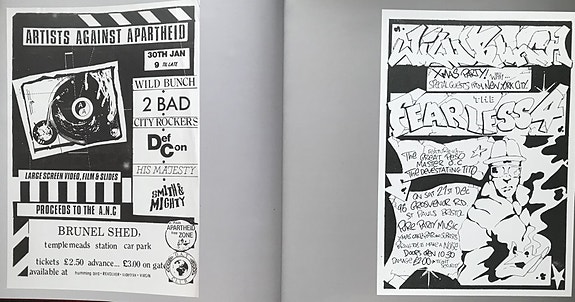 ARTISTS AGAINST APARTHEID
30TH JAN
9 TIL LATE
WILD BUNCH
2 BAD
CITY ROCKERS
Def
Con
HIS MAJESTY
SMITH &
MIGHTY
LARGE SCREEN VIDEO, FILM & SLIDES
PROCEEDS TO THE A.N.C
BRUNEL SHED,
templemeads station car park
tickets £2.50 advance... £3.00 on gate
available at
REVOLVER
VIRGIN
APARTHEID
ZONE
WILD BUNCH
XMAS PARTY! WITH
SPECIAL GUESTS FROM NEW YORK CITY
THE
FEARLESS 4
THE GREAT PESO
MASTER O.C
THE DEVASTATING TITO
ON SAT 21ST DEC
96 GROSVENOR RD.
ST PAULS BRISTOL
PURE PARTY MUSIC
DOORS OPEN 10.30
DAMAGE £2.00